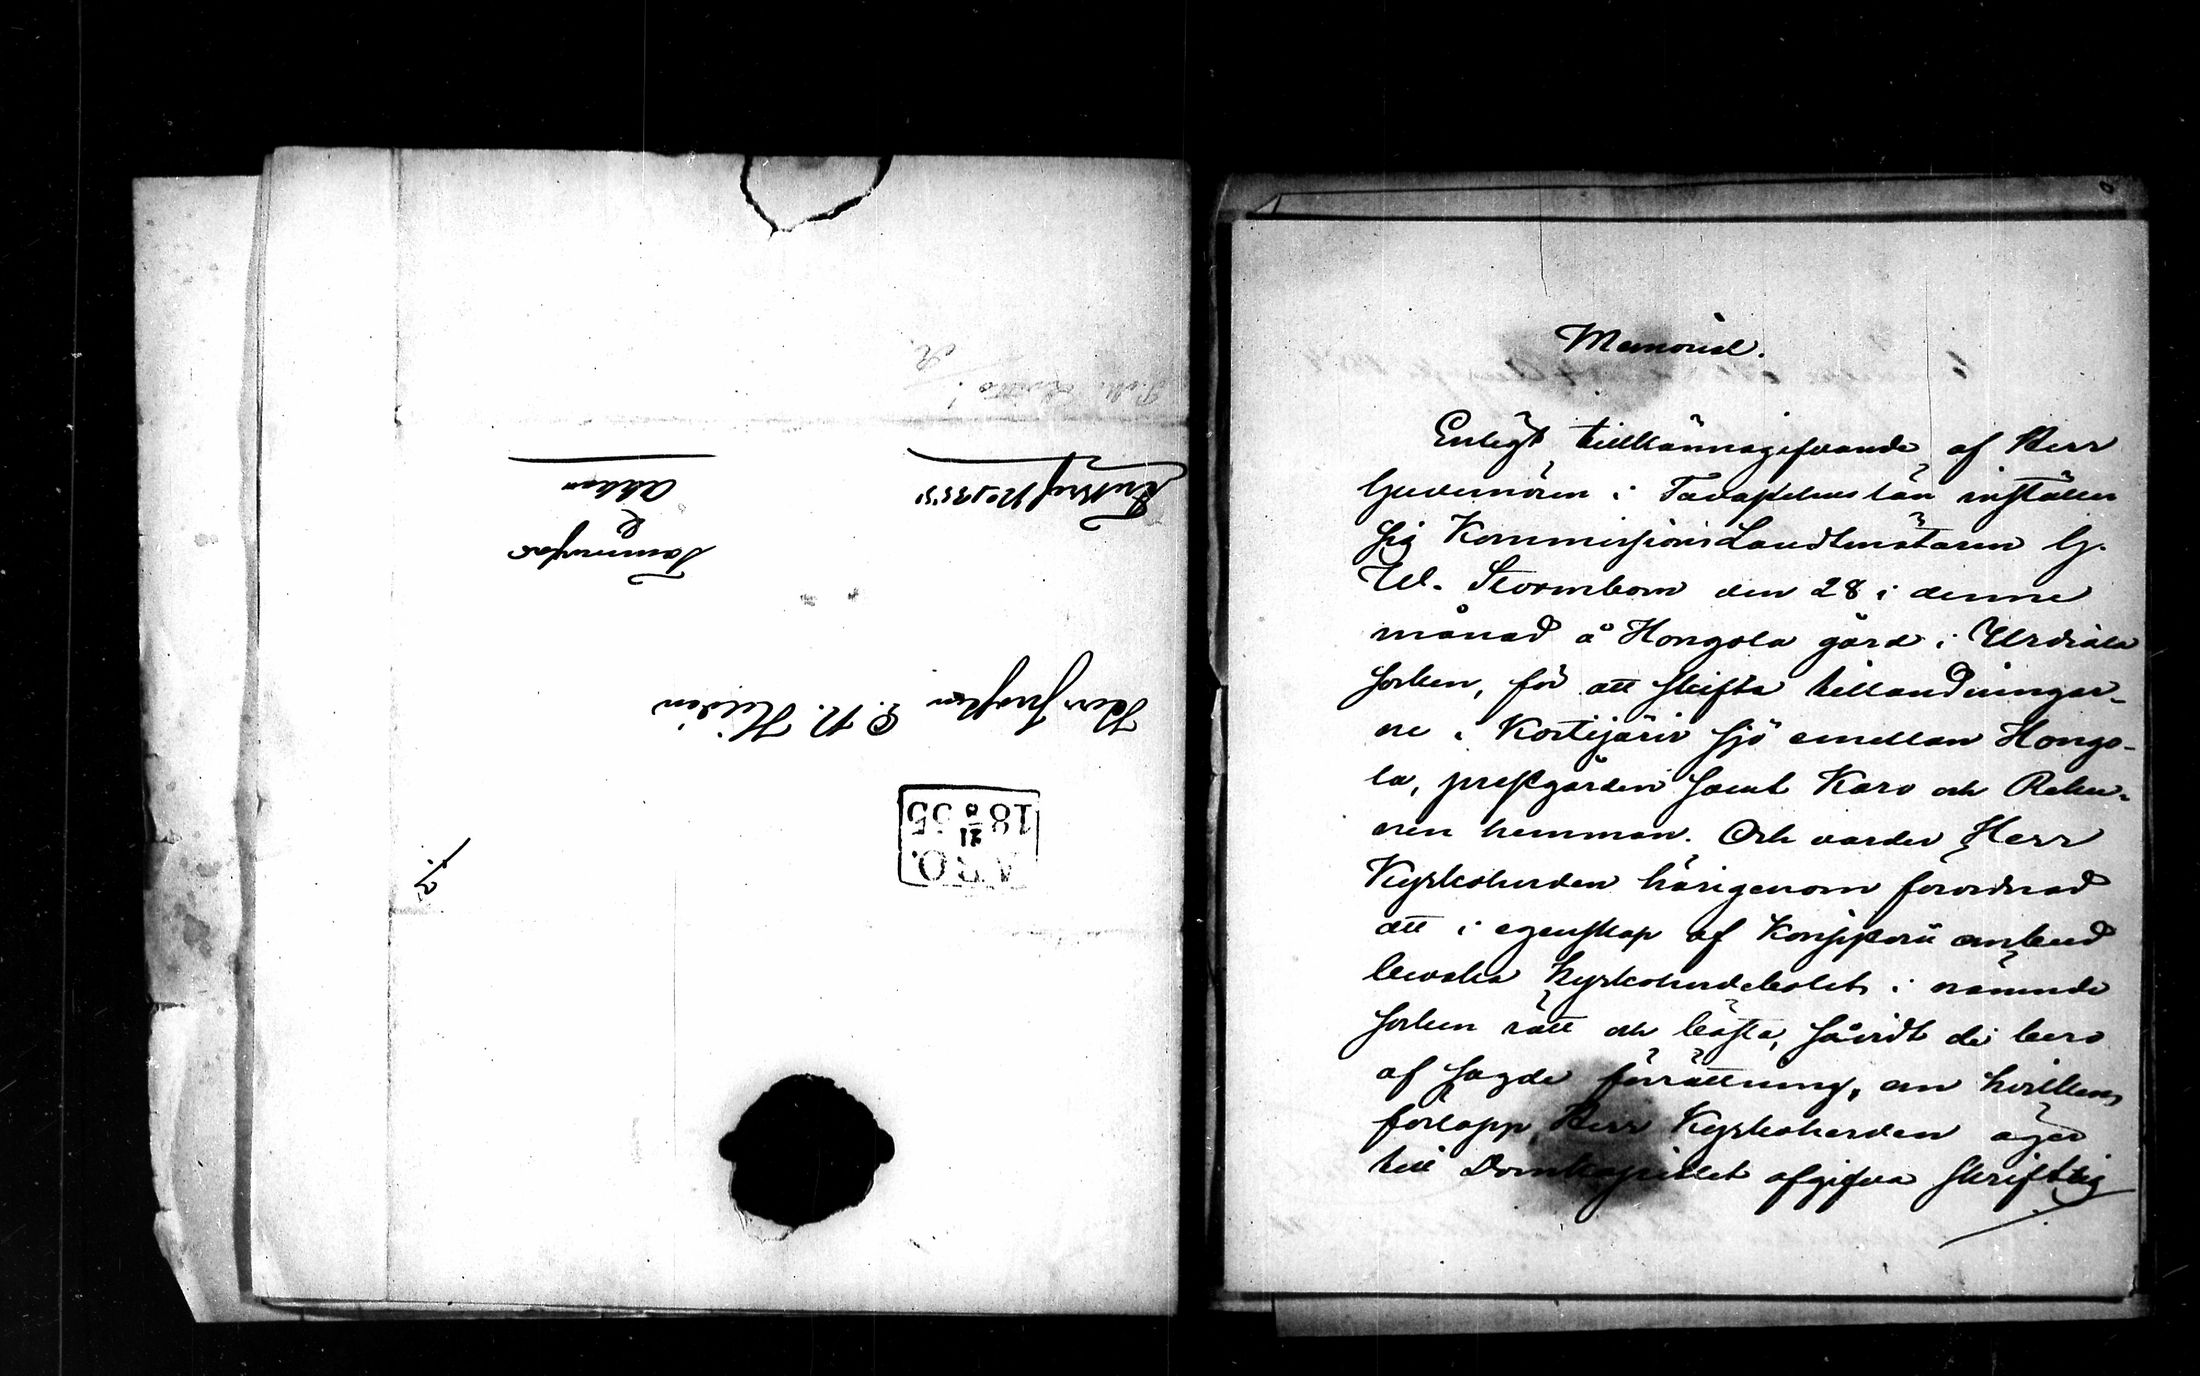 ÅBO.
18 21/8 55
Herr Prosten C. N. Heldén
Tammerfors
&
Akkas
Memorial.
Enligt tillkännagifvande af Herr
Guvernören i Tavastehus län inställer
sig Kommissions Landtmätaren G.
W. Stormbom den 28 i denne
månad å Hongola gård i Urdiala
socken, för att skifta tillandningar-
ne i Kortijärvi sjö emellan Hongo-
la, prestgården samt Karo och
nen hemman. Och varder Herr
Kyrkoherden härigenom förordnad
att i egenskap af Konsistorii ombud
bevaka Kyrkoherdebolets i nämnde
socken rätt och bästa, såvidt de bero
af sagde förrättning, om hvilkens
förlopp Herr Kyrkoherden äger
till Domkapitlet afgifva skriftlig